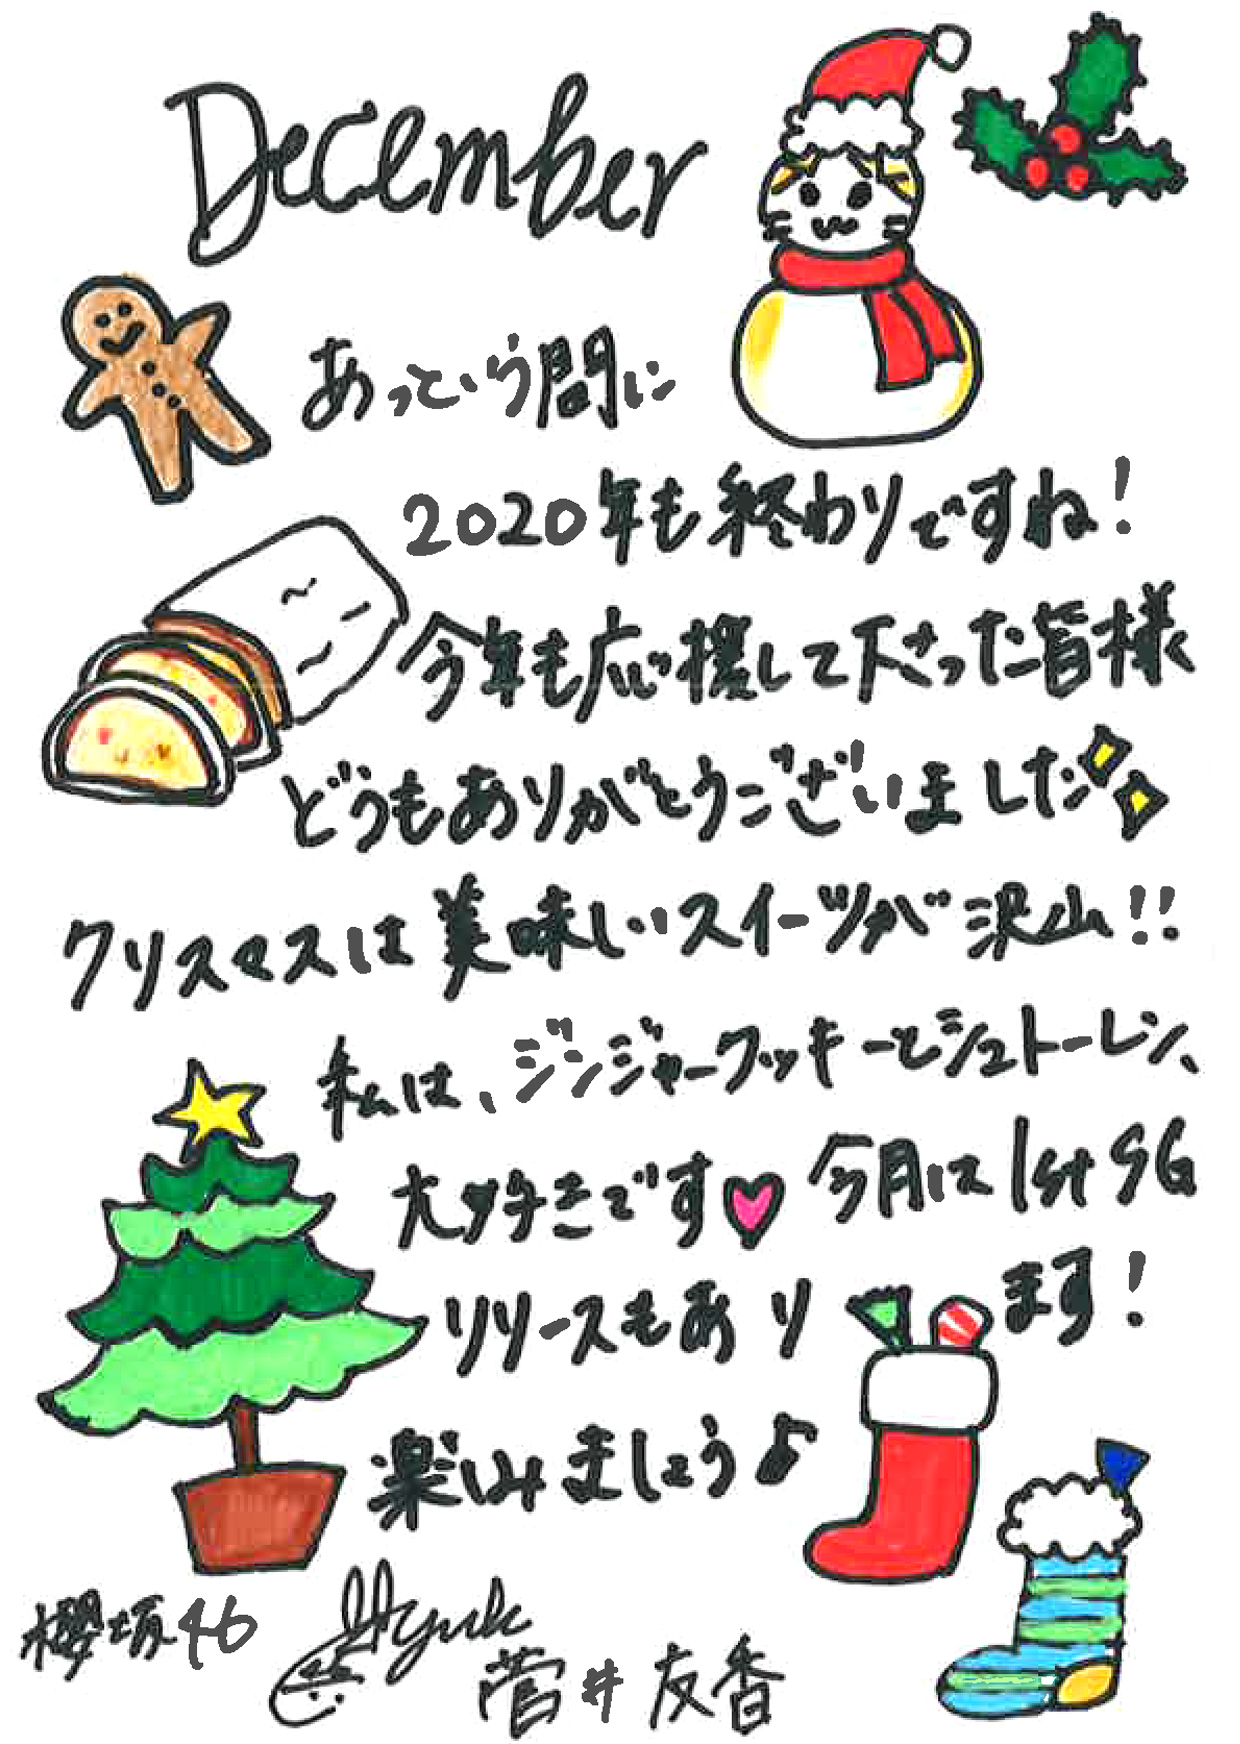 December
あっという間に
2020年も終わりですね!
今年も応援して下さった皆様
どうもありがとうございました
クリスマスは美味しいスイーツが沢山!!
私は、ジンジャークッキーとシュトーレン、
大好きです♥ 今月は1st SG
リリースもあります!
楽しみましょう♪
櫻坂46
菅井友香